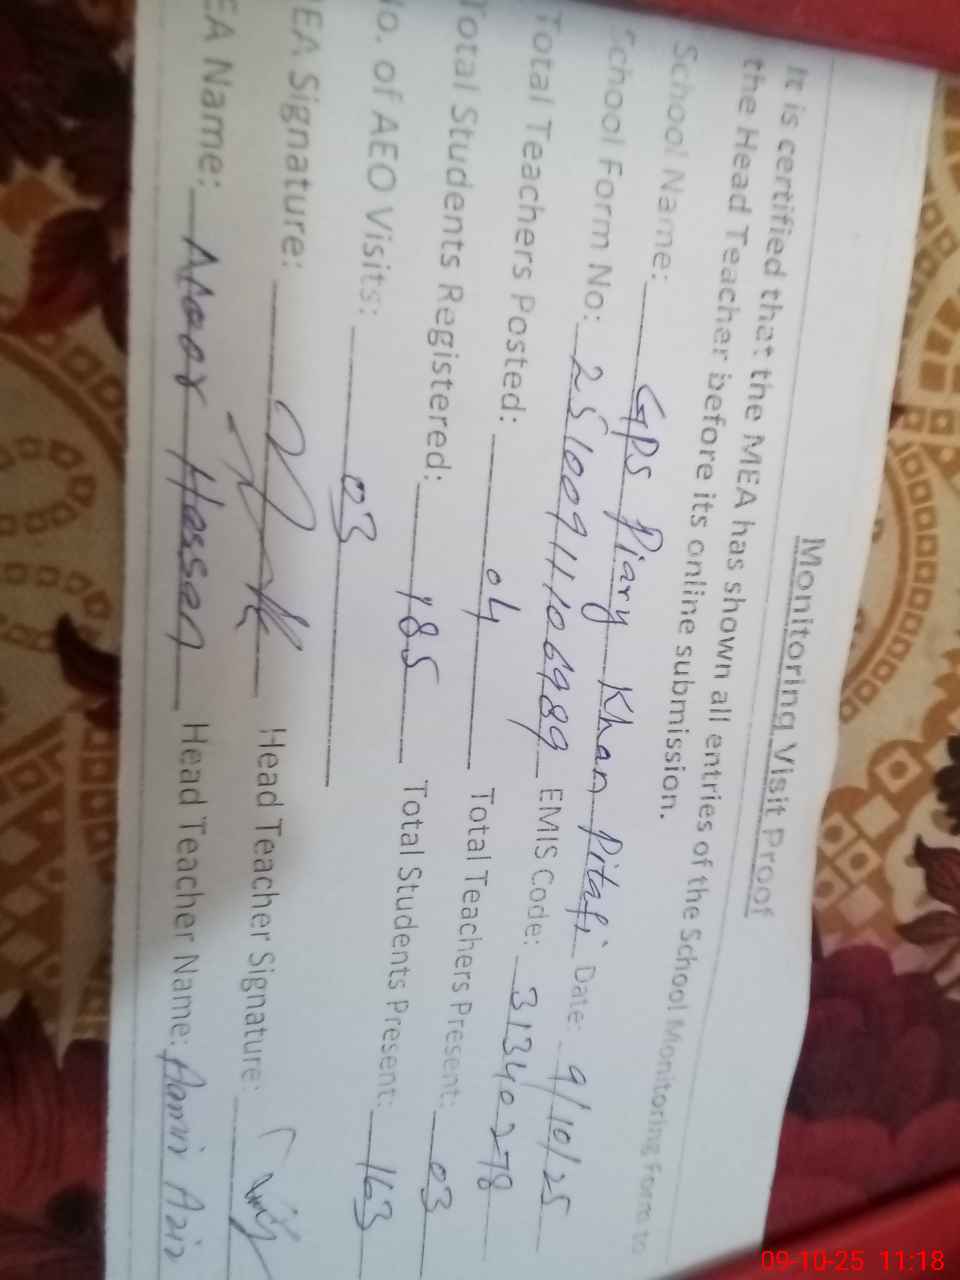 Monitoring Visit Proof
It is certified that the MEA has shown all entries of the School Monitoring Form to
the Head Teacher before its online submission.
School Name: GPS Piary Khan Pitafi Date: 9/10/25
School Form No: 2510091106989 EMIS Code: 31340278
Total Teachers Posted: 04 Total Teachers Present: 03
Total Students Registered: 185 Total Students Present: 163
No. of AEO Visits: 03
EA Signature: Head Teacher Signature:
EA Name: Hassan Head Teacher Name:
09-10-25 11:18